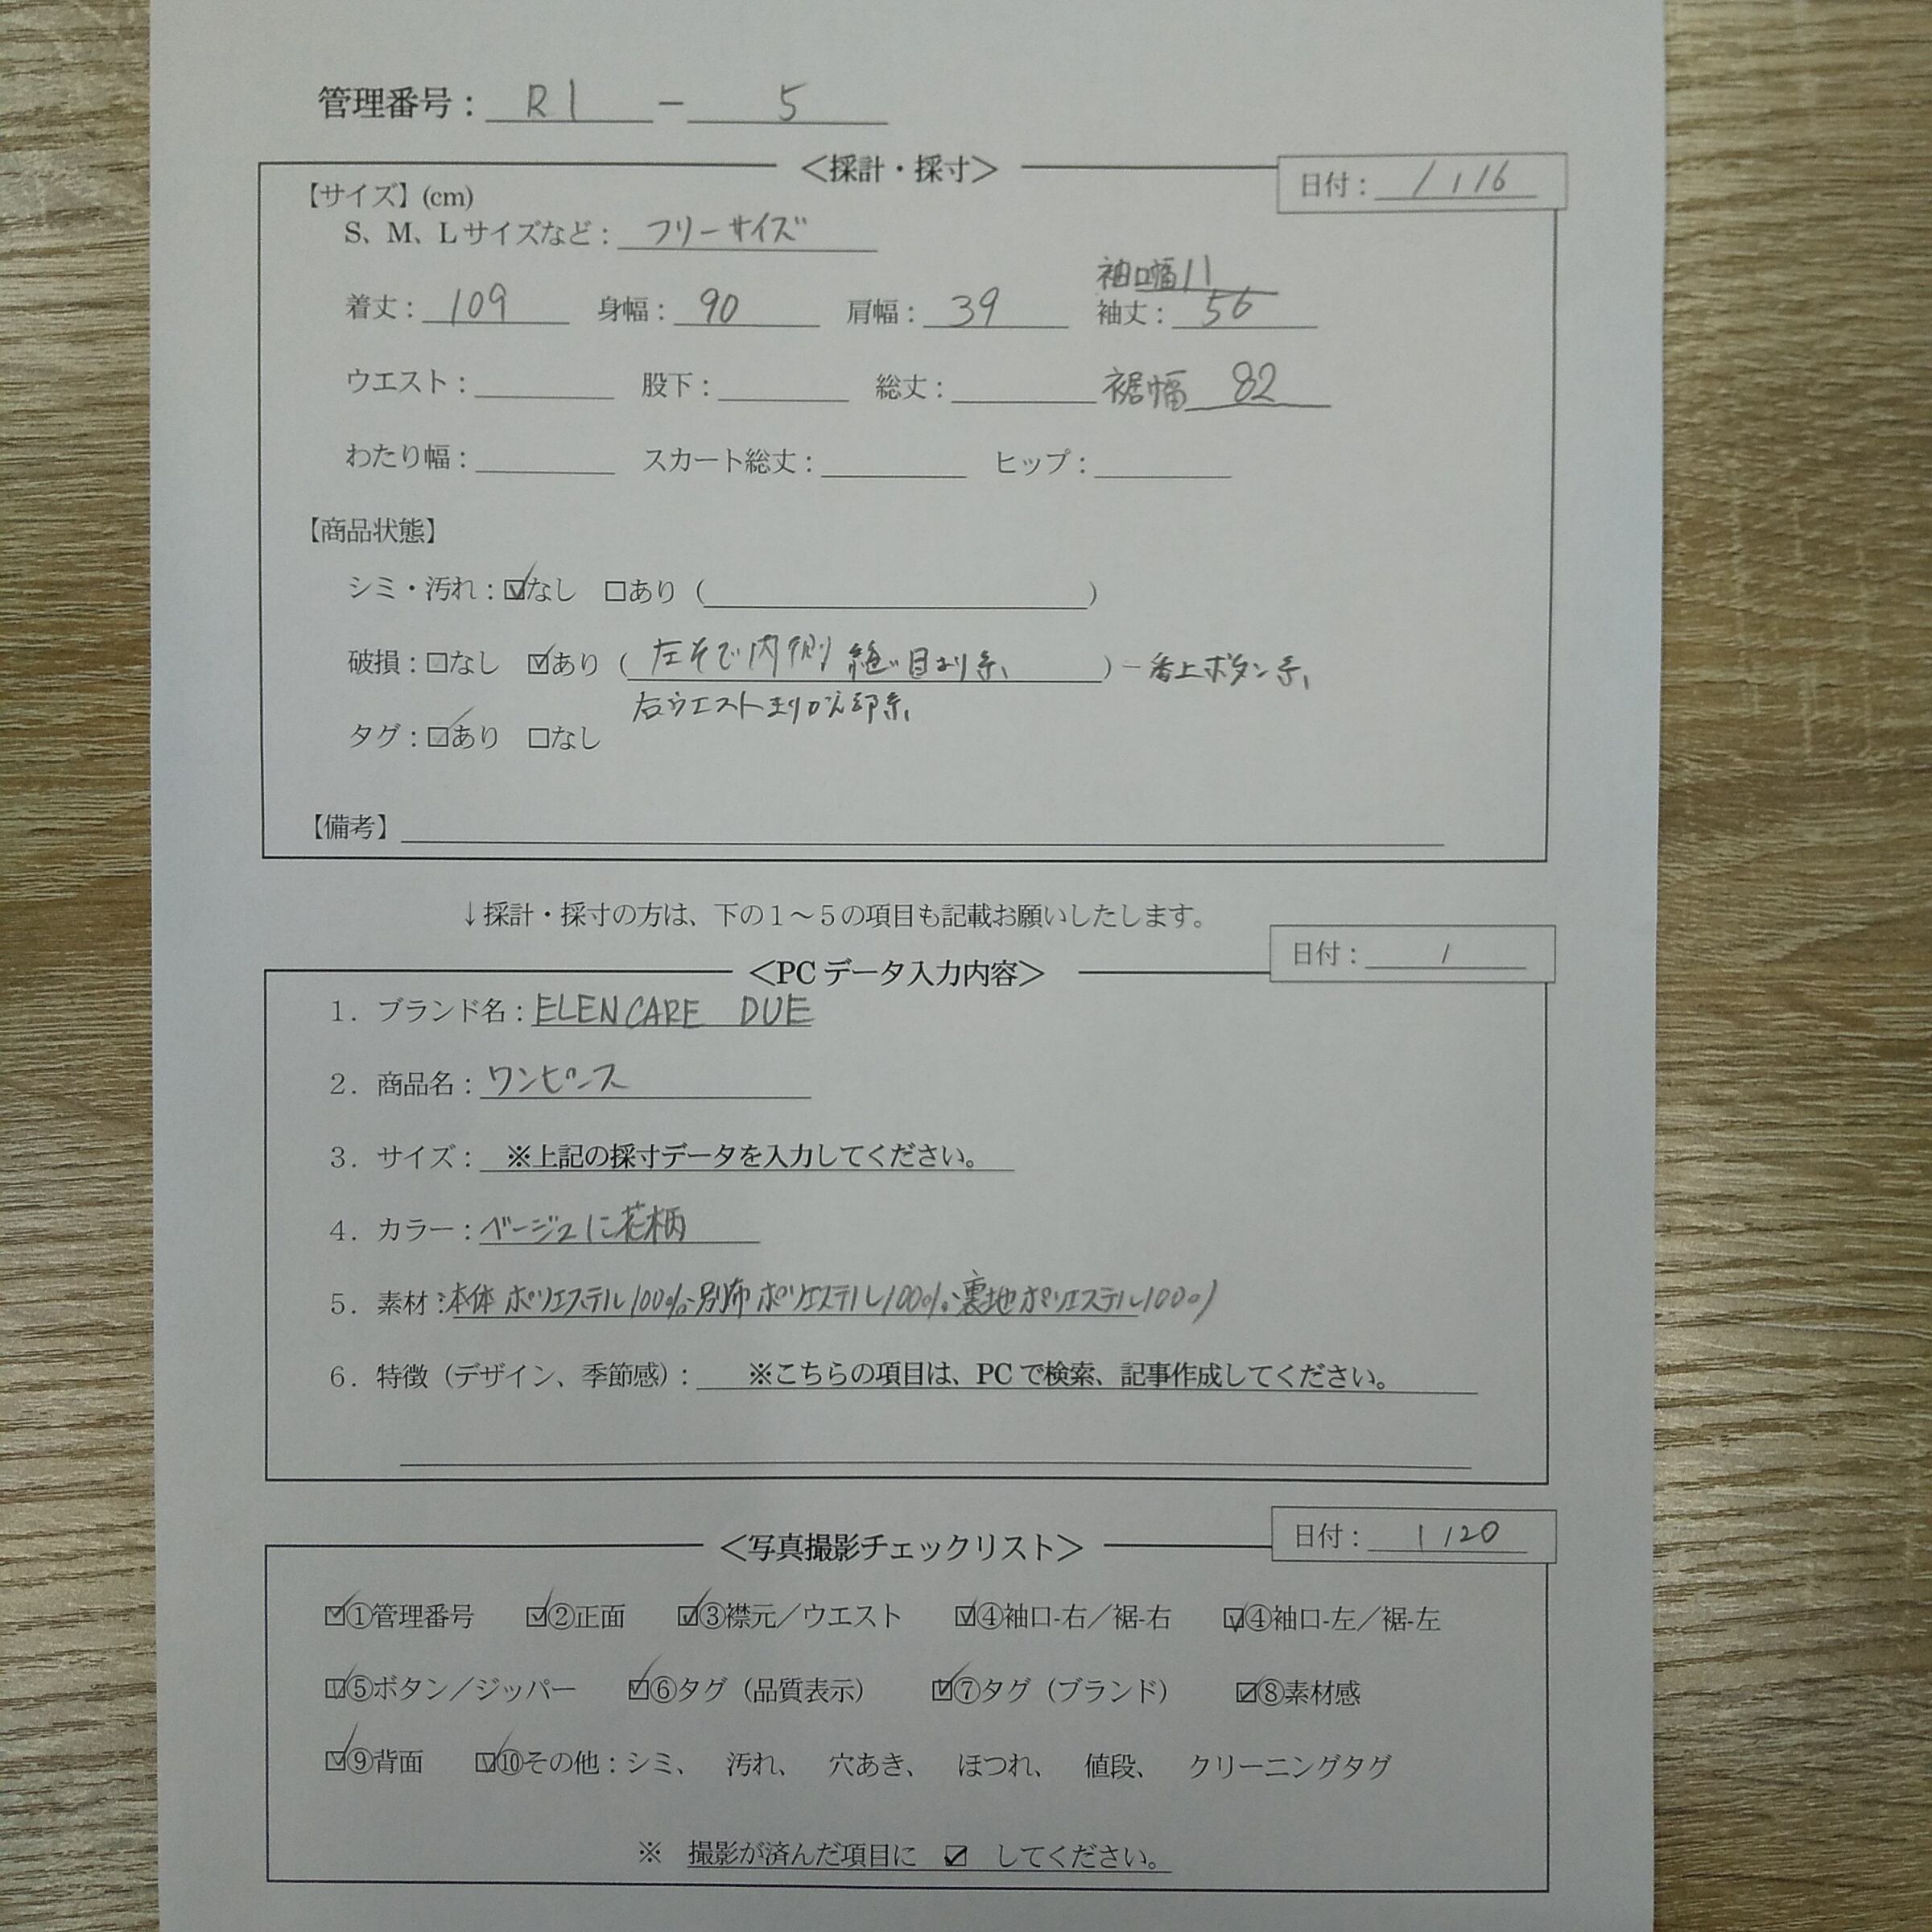 管理番号：R1－5
＜採計・採寸＞
日付：1/16
【サイズ】(cm)
S、M、Lサイズなど：フリーサイズ
袖口幅11
着丈：109 身幅：90 肩幅：39 袖丈：56
ウエスト： 股下： 総丈： 裾幅 82
わたり幅： スカート総丈： ヒップ：
【商品状態】
シミ・汚れ：☑なし □あり（ ）
破損：□なし ☑あり（左そで内側 縫い目より糸、）一番上ボタン糸、
右ウエスト切りかえ部糸、
タグ：☑あり □なし
【備考】
↓採計・採寸の方は、下の１～５の項目も記載お願いしたします。
＜PCデータ入力内容＞
日付： /
1．ブランド名：ELENCARE DUE
2．商品名：ワンピース
3．サイズ：※上記の採寸データを入力してください。
4．カラー：ベージュに花柄
5．素材：本体 ポリエステル100%、別布 ポリエステル100%、裏地 ポリエステル100%
6．特徴（デザイン、季節感）：※こちらの項目は、PCで検索、記事作成してください。
＜写真撮影チェックリスト＞
日付：1/20
☑①管理番号 ☑②正面 ☑③襟元／ウエスト ☑④袖口-右／裾-右 ☑④袖口-左／裾-左
☑⑤ボタン／ジッパー ☑⑥タグ（品質表示） ☑⑦タグ（ブランド） ☑⑧素材感
☑⑨背面 ☑⑩その他：シミ、 汚れ、 穴あき、 ほつれ、 値段、 クリーニングタグ
※ 撮影が済んだ項目に ☑ してください。